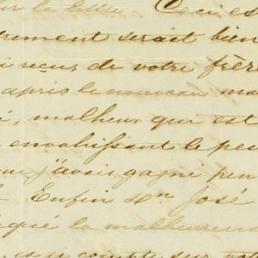 sur la lettre. Ceci es
trement serait bien
i reçu, de votre frère
après le nouveau ma
é, malheur qui est
envahissant le pe
que j'avais gagné pen
Enfin Dn José
qué la malheureus
compte sur votre